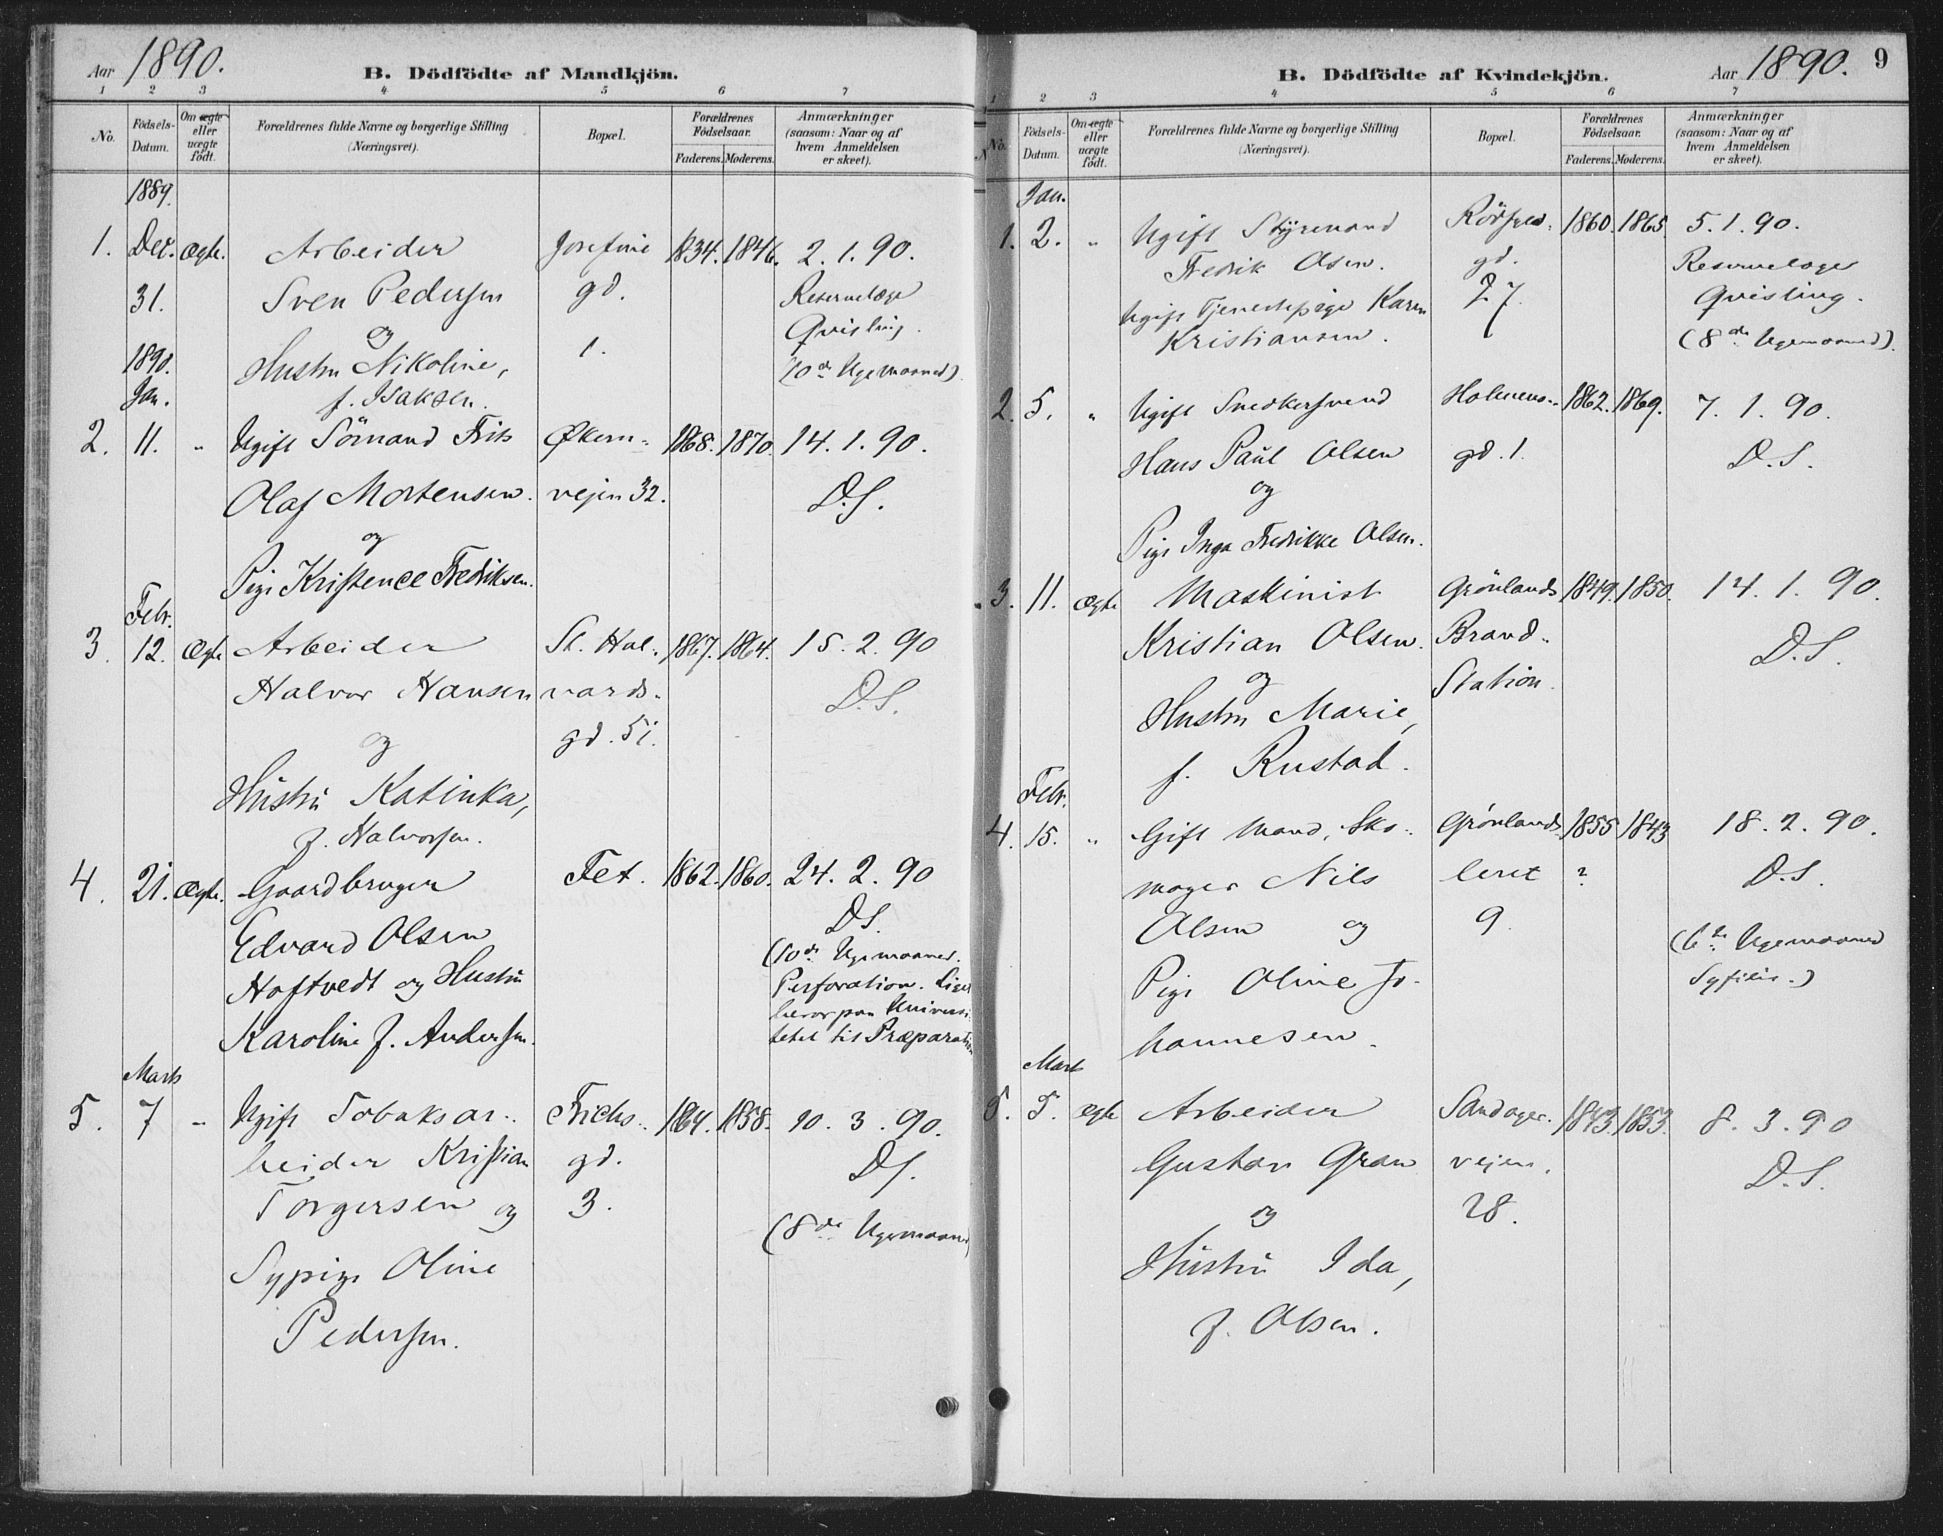 Aar 1890.
B. Dödfödte af Mandkjön.
1 2 3 4 5 6 7
No.
Födsels-Datum.
Om ægte eller uægte födt.
Forældrenes fulde Navne og borgerlige Stilling (Næringsvei).
Bopæl.
Forældrenes Födselsaar.
Faderens. Moderens.
Anmærkninger (saasom: Naar og af hvem Anmeldelsen er skeet).
1889.
1. Dec. ægte. Arbeider Josefine 1834. 1846. 2.1.90.
31. Sven Pedersen gd. Reservelæge
og Qvisling.
1890. Hustru Nikoline, 1. (10de Ugemaaned).
Jan. f. Isaksen.
2. 11. " Ugift Sömand Frits Økern- 1868. 1870. 14.1.90.
Olaf Mortensen. vejen 32. D.S.
og
Pige Kristence Fredriksen.
Febr.
3. 12. Ægte Arbeider St. Hal- 1867. 1864. 15.2.90
Halvor Hansen vards- D.S.
og gd. 51.
Hustru Katinka,
f. Halvorsen.
4. 21. Ægte. Gaardbruger Fet. 1862. 1860. 24.2.90
Edvard Olsen D.S.
Hoftvedt og Hustru (10de Ugemaaned.
Karoline f. Andersen. Perforation. Liget
beror paa Universi-
tetet til Præparation
Marts
5. 7 " Ugift Tobaksar- Frichs- 1864. 1858. 10.3.90.
beider Kristian gd. D.S.
Torgersen og 3.
Sypige Oline (8de Ugemaaned)
Pedersen.
B. Dödfödte af Kvindekjön.
Aar 1890. 9
1 2 3 4 5 6 7
No.
Födsels-Datum.
Om ægte eller uægte födt.
Forældrenes fulde Navne og borgerlige Stilling (Næringsvei).
Bopæl.
Forældrenes Födselsaar.
Faderens. Moderens.
Anmærkninger (saasom: Naar og af hvem Anmeldelsen er skeet).
Jan.
1. 2. " Ugift Styrmand 1860. 1865. 5.1.90.
Fredrik Olsen. gd. Reservelæge
Ugift Tjenestepige Karen 27. Qvisling.
Kristiansen. (8de Ugemaaned).
2. 5. " Ugift Snedkersvend Holmens- 1862. 1869. 7.1.90.
Hans Paul Olsen gd. 1. D.S.
og
Pige Inga Fredrikke Olsen.
3. 11. ægte Maskinist Grönlands 1849. 1850. 14.1.90.
Kristian Olsen. Brand- D.S.
og Station.
Hustru Marie,
f. Rustad.
Febr.
4. 15. " Gift Mand, Sko- Grönlands 1855 1843 18.2.90.
mager Nils leret ? D.S.
Olsen og 9 (6te Ugemaaned
Pige Oline Jo- Syfilis.)
hannesen.
Marts
5. 5. ægte Arbeider Sandager- 1843. 1853. 8.3.90
Gustav Gran vejen. D.S.
og 28.
Hustru Ida,
f. Olsen.